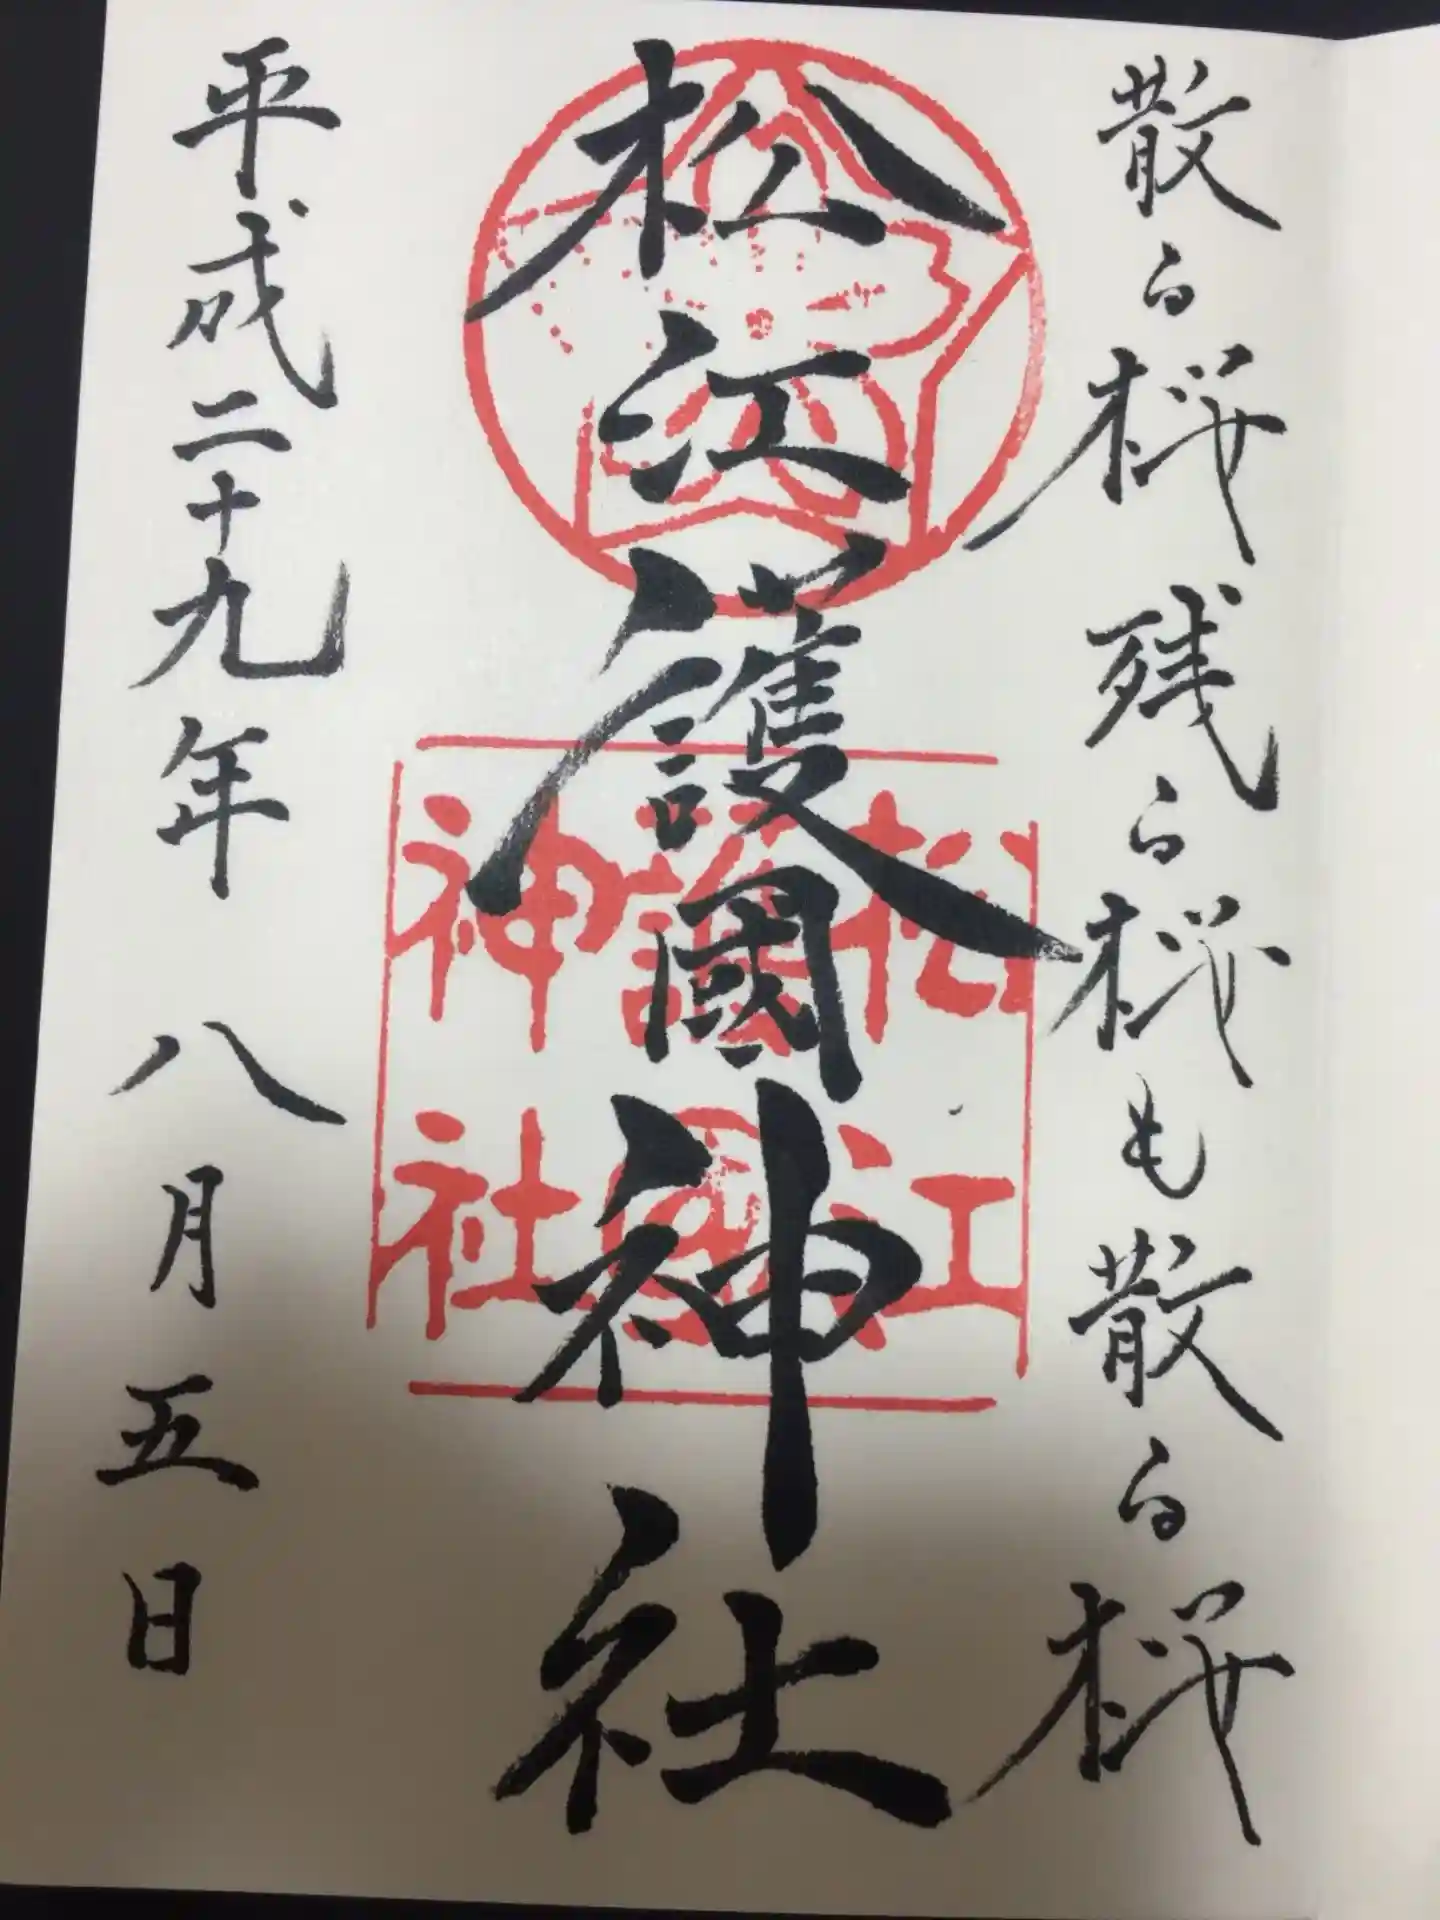 散る桜残る桜も散る桜
松江護國神社
松江
護國
神社
平成二十九年 八月五日